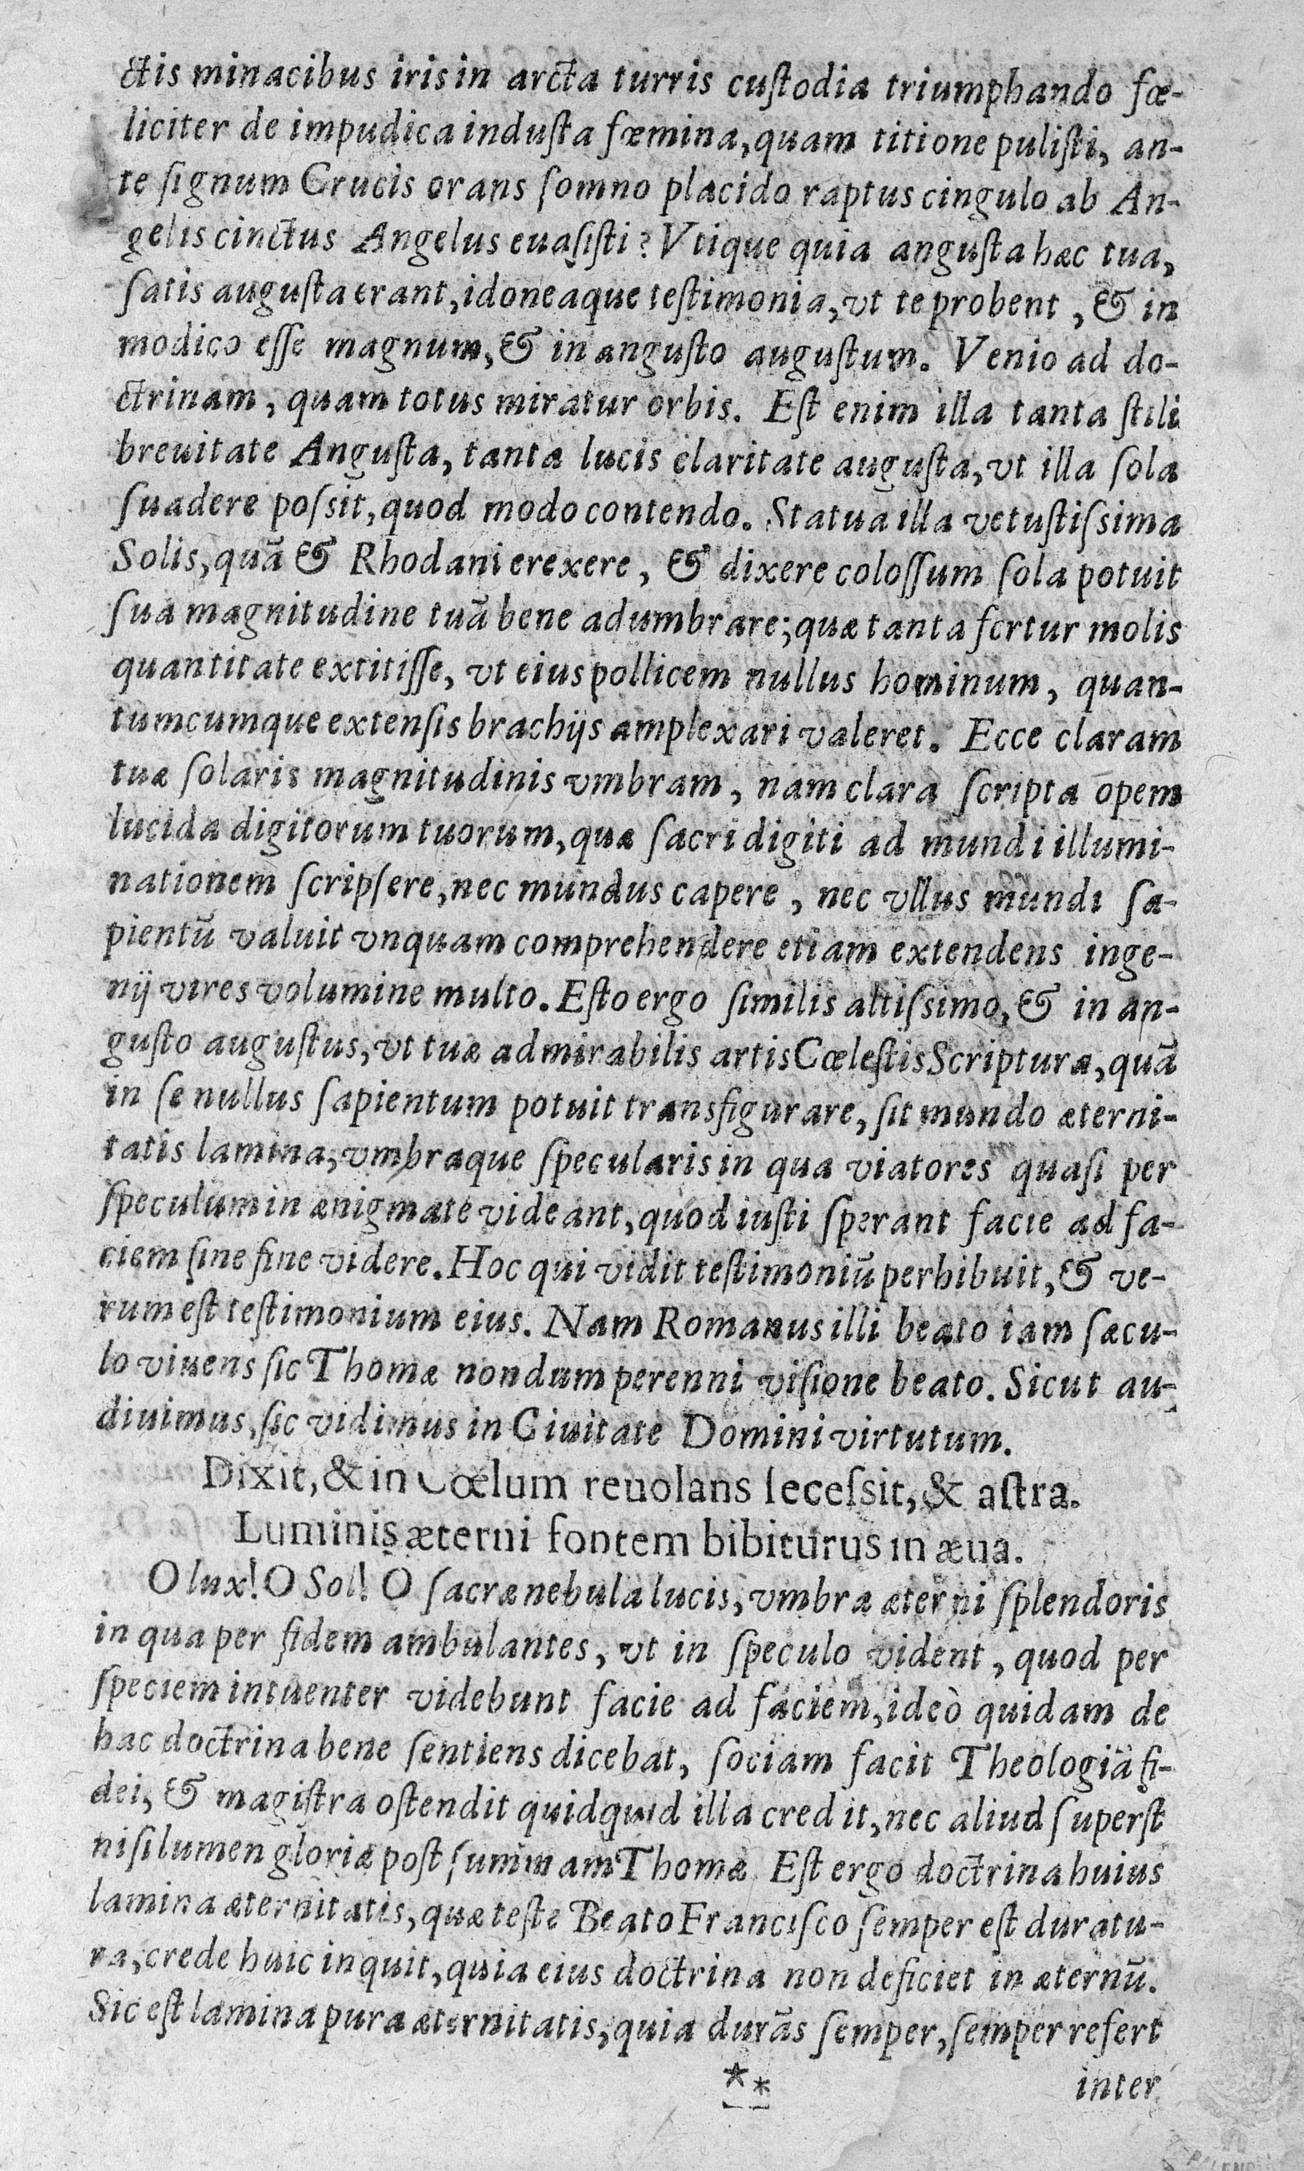 ctis minacibus iris in arcta turris custodia triumphando fœ-
liciter de impudica industa fœmina, quam titione pulisti, an-
te signum Crucis orans somno placido raptus cingulo ab An-
gelis cinctus Angelus euasisti? Vtique quia angusta hæc tua,
satis augusta erant, idoneaque testimonia, vt te probent, & in
modico esse magnum, & in angusto augustum. Venio ad do-
ctrinam, quam totus miratur orbis. Est enim illa tanta stili
breuitate Angusta, tanta lucis claritate augusta, vt illa sola
suadere possit, quod modo contendo. Statua illa vetustissima
Solis, quā & Rhodani erexere, & dixere colossum sola potuit
sua magnitudine tuā bene adumbrare; quæ tanta fertur molis
quantitate extitisse, vt eius pollicem nullus hominum, quan-
tumcumque extensis brachijs amplexari valeret. Ecce claram
tuæ solaris magnitudinis vmbram, nam clara scripta opem
lucida digitorum tuorum, quæ sacri digiti ad mundi illumi-
nationem scripsere, nec mundus capere, nec vllus mundi sa-
pientū valuit vnquam comprehendere etiam extendens inge-
nij vires volumine multo. Esto ergo similis altissimo, & in an-
gusto augustus, vt tuæ admirabilis artis Cœlestis Scripturæ, quā
in se nullus sapientum potuit transfigurare, sit mundo æterni-
tatis lamina, vmbraque specularis in qua viatores quasi per
speculum in ænigmate videant, quod iusti sperant facie ad fa-
ciem sine fine videre. Hoc qui vidit testimoniū perhibuit, & ve-
rum est testimonium eius. Nam Romanus illi beato iam sæcu-
lo viuens sic Thomæ nondum perenni visione beato. Sicut au-
diuimus, sic vidimus in Ciuitate Domini virtutum.
Dixit, & in Cœlum reuolans secessit, & astra.
Luminis æterni fontem bibiturus in æua.
O lux! O Sol! O sacræ nebula lucis, vmbra æterni splendoris
in qua per fidem ambulantes, vt in speculo vident, quod per
speciem intuenter videbunt facie ad faciem, ideò quidam de
hac doctrina bene sentiens dicebat, sociam facit Theologiā fi-
dei, & magistra ostendit quidquid illa credit, nec aliud superst
nisi lumen gloriæ post summam Thomæ Est ergo doctrina huius
lamina æternitatis, quæ teste Beato Francisco semper est duratu-
ra, crede huic inquit, quia eius doctrina non deficiet in æternū.
Sic est lamina pura æternitatis, quia durās semper, semper refert
**
inter